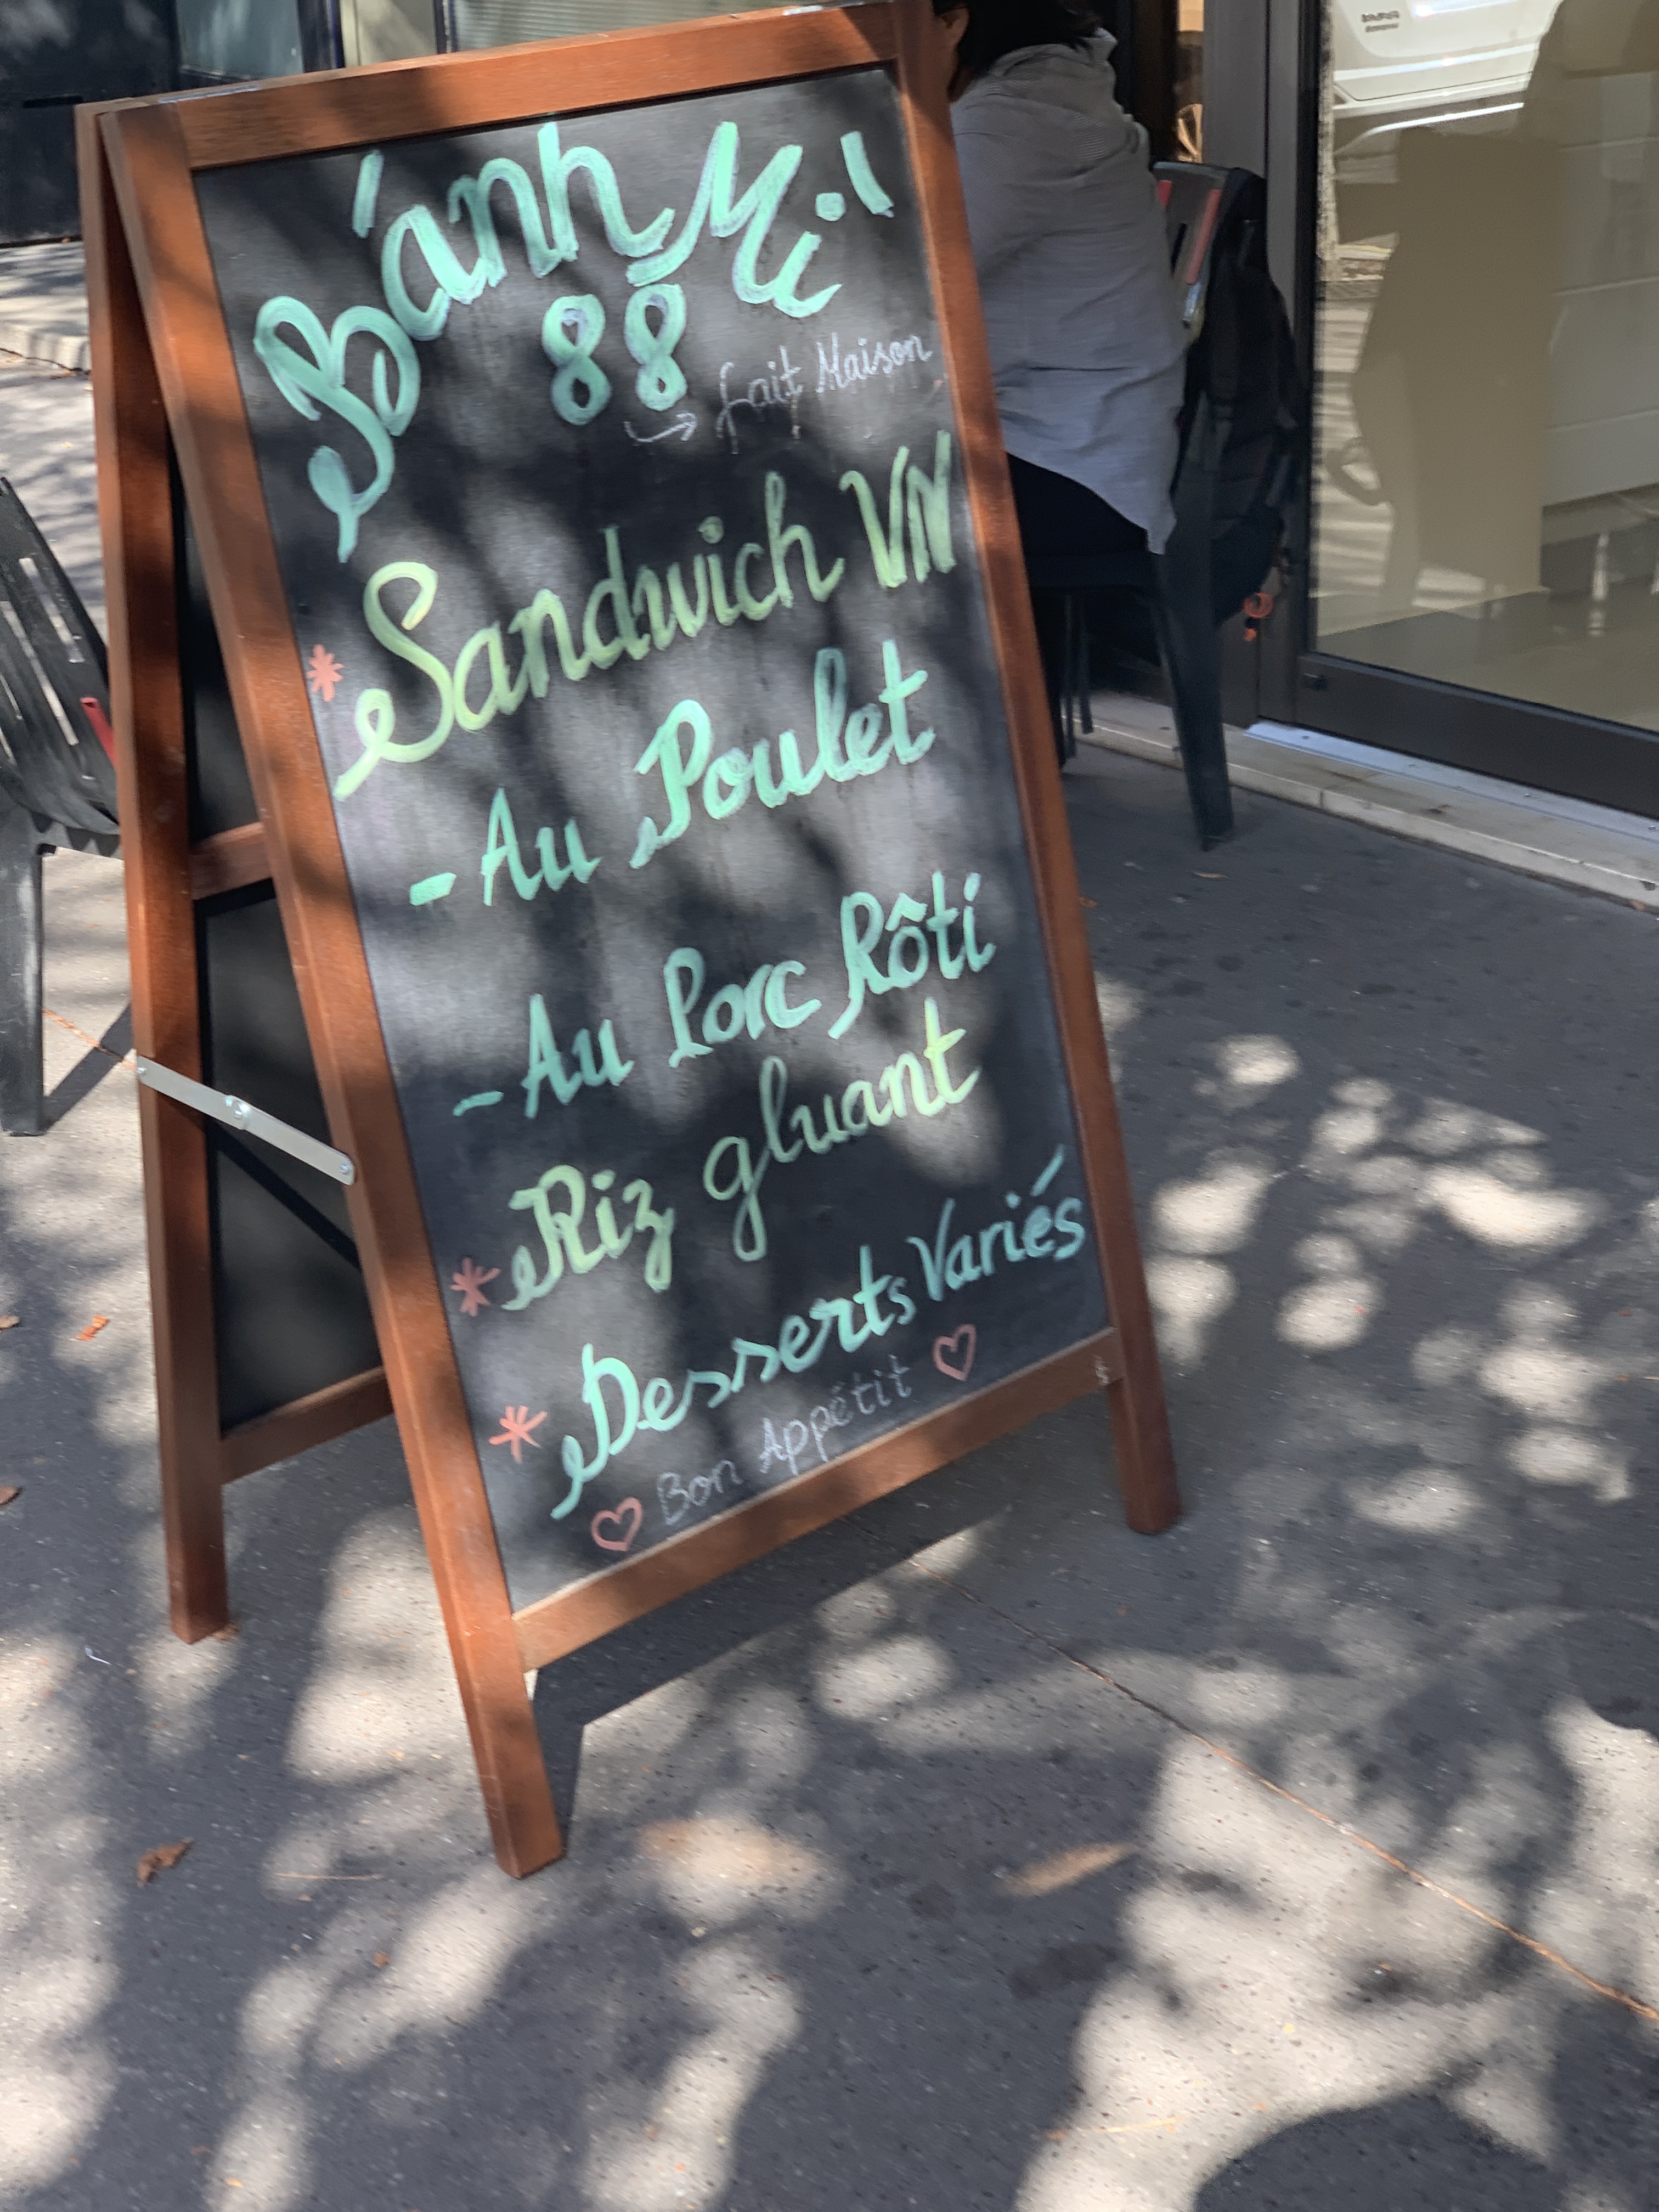 Bánh Mì
88
→ fait Maison
* Sandwich VN
- Au Poulet
- Au Porc Rôti
* Riz gluant
* Desserts Variés
♡ Bon Appétit ♡